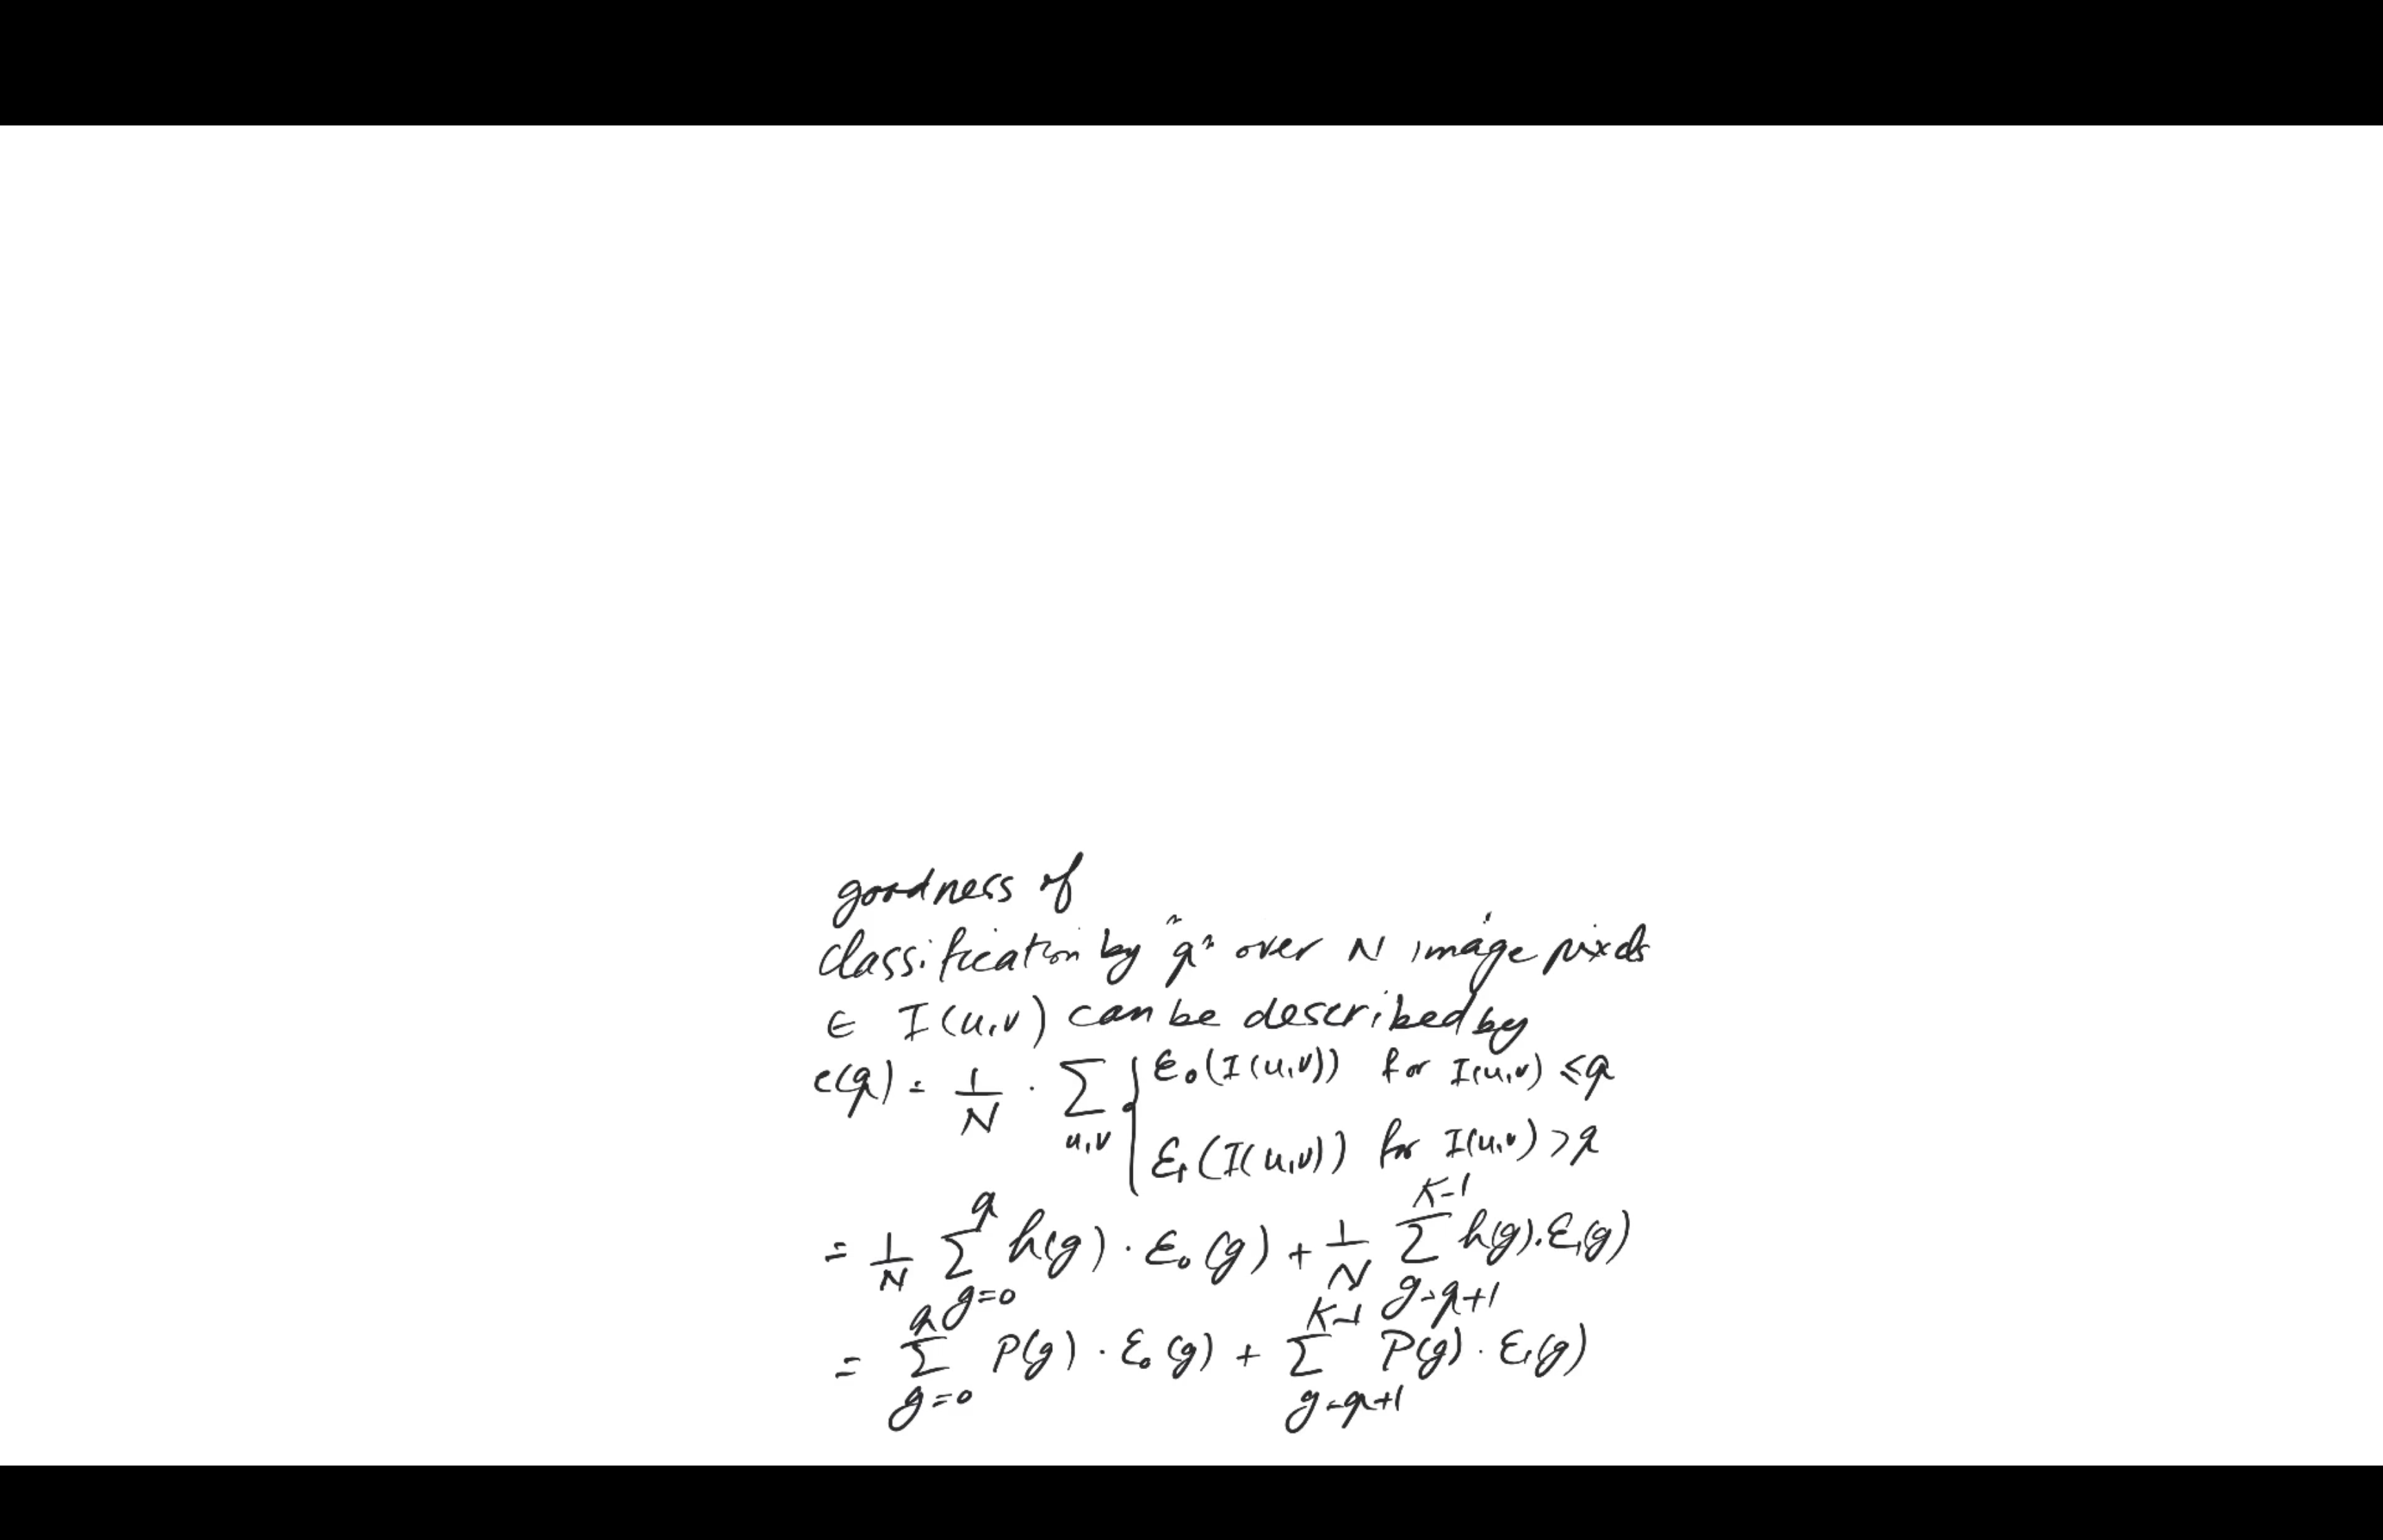 goodness of
classification by "q" over N image pixels
∈ I(u,v) can be described by
e(q) = 1/N · Σ_{u,v} { ε₀(I(u,v)) for I(u,v) ≤ q
ε₁(I(u,v)) for I(u,v) > q
= 1/N Σ_{g=0}^{q} h(g) · ε₀(g) + 1/N Σ_{g=q+1}^{K-1} h(g) · ε₁(g)
= Σ_{g=0}^{q} P(g) · ε₀(g) + Σ_{g=q+1}^{K-1} P(g) · ε₁(g)